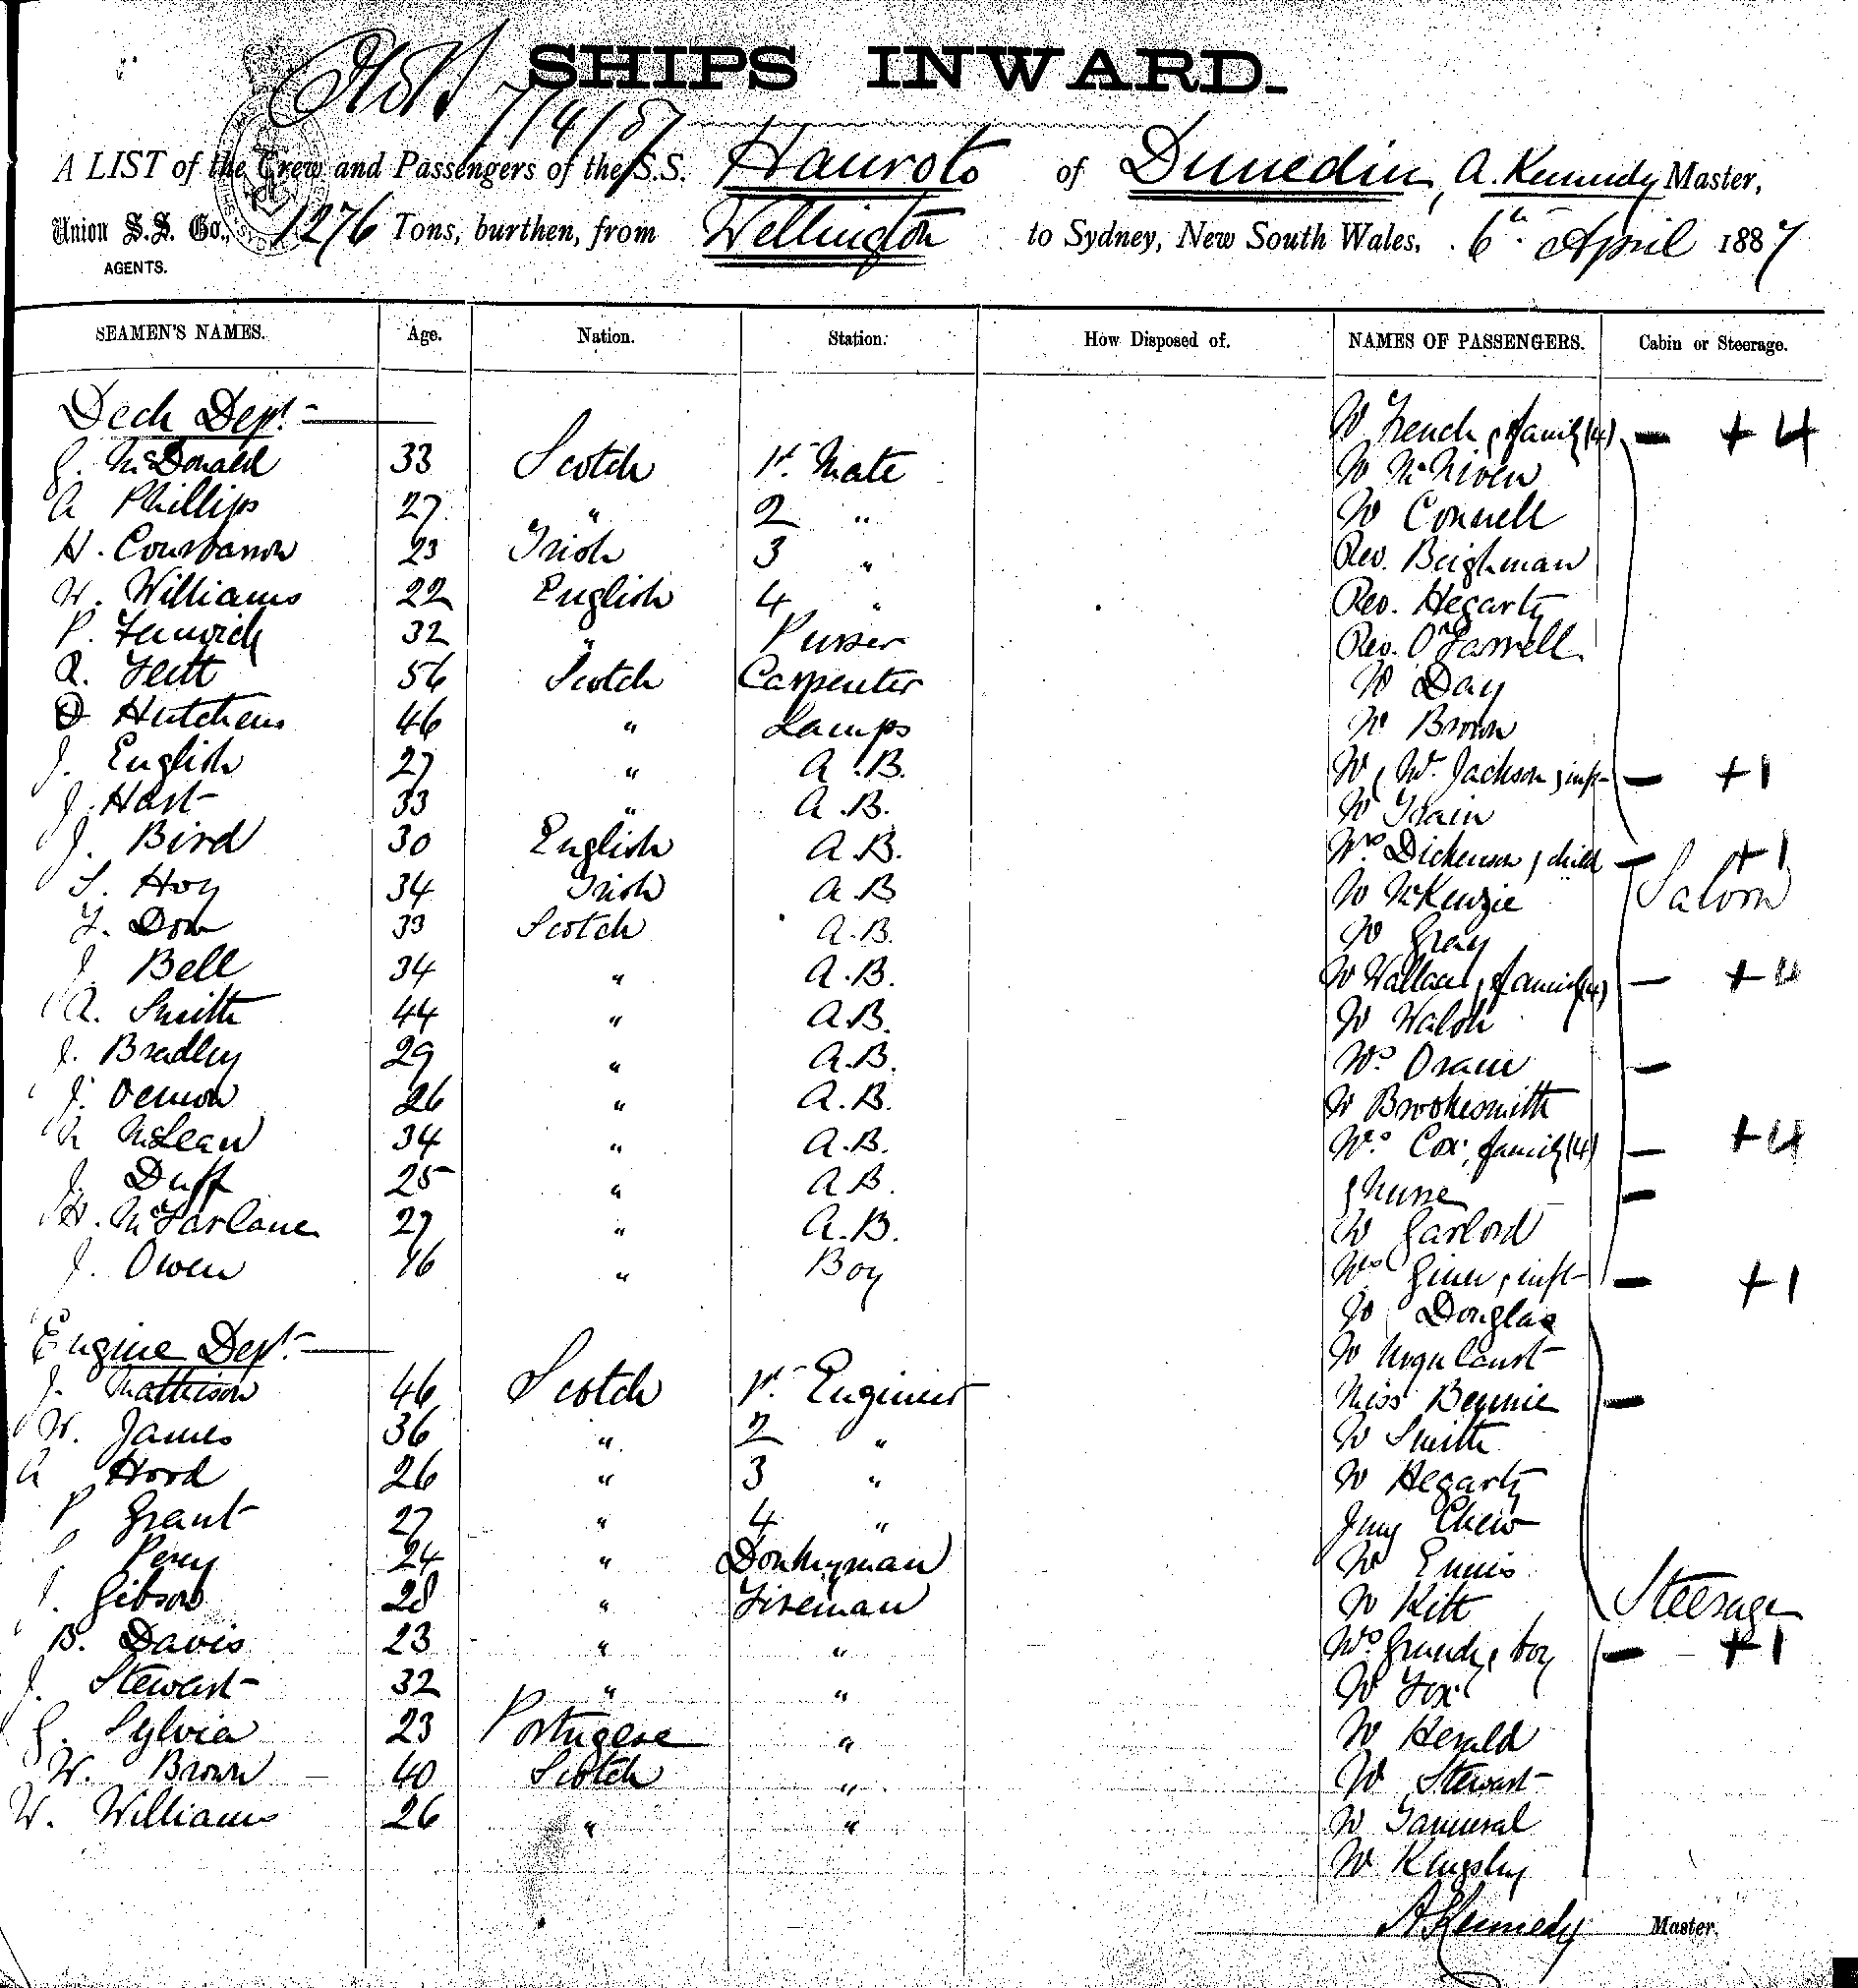 SHIPS INWARD.
7/4/87
A LIST of the Crew and Passengers of the S.S. Hauroto of Dunedin, A. Kennedy Master,
Union S.S. Co., 1276 Tons, burthen, from Wellington to Sydney, New South Wales, 6th April 1887
AGENTS.
SEAMEN'S NAMES. Age. Nation. Station. How Disposed of. NAMES OF PASSENGERS. Cabin or Steerage.
Deck Dept. Mr French & family (4) — + 4
G. McDonald 33 Scotch 1st Mate Mr McNiven
A Phillips 27 " 2 " Mr Connell
H. 23 Irish 3 " Rev. Beighman
W. Williams 22 English 4 " Rev. Hegarty
P. Fenwick 32 " Purser Rev. O'Farrell
R. 56 Scotch Carpenter Mr Day
D Hutchens 46 " Lamps Mr Brown
J. English 27 " A.B. Mr & Mrs. Jackson & inft — + 1
J. Hart 33 " A.B. Mr
J. Bird 30 English A.B. Mrs Dickenson & child — + 1
S. Hoy 34 Irish A.B Mr McKenzie Saloon
33 Scotch A.B. Mr Gray
J. Bell 34 " A.B. Mr Wallace & family (4) — + 4
A. Smith 44 " A.B. Mr Walsh
J. Bradley 29 " A.B. Mrs —
J. 26 " A.B. Mr Brookesmith
A McLean 34 " A.B. Mrs Cox, family (4) — + 4
J. Duff 25 " A.B. & Nurse —
H. McFarlane 27 " A.B. Mr
J. Owen 16 " Boy Mrs & inft — + 1
Mr Douglas
Engine Dept. Mr
J. Mathison 46 Scotch 1st Engineer Miss Bennie —
W. James 36 " 2 " Mr Smith
A Hood 26 " 3 " Mr Hegarty
P Grant 27 " 4 " Chew
Percy 24 " Donkeyman Mr Ennis
J. Gibson 28 " Fireman Mr Kitt Steerage
B. Davis 23 " " Mrs & boy — + 1
J. Stewart 32 " " Mr Fox
G. Sylvia 23 Portugese " Mr Herald
W. Brown 40 Scotch " Mr Stewart
W. Williams 26 " " Mr
Mr Kingsley
A Kennedy Master.